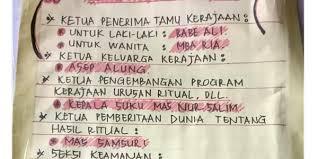 * KETUA PENERIMA TAMU KERAJAAN :
* UNTUK LAKI-LAKI : BABE ALI
* UNTUK WANITA : MBA RIA
* KETUA KELUARGA KERAJAAN :
* ASEP ALUNG
* KETUA PENGEMBANGAN PROGRAM
KERAJAAN URUSAN RITUAL, DLL.
* KEPALA SUKU MAS NUR SALIM
* KETUA PEMBERITAAN DUNIA TENTANG
HASIL RITUAL :
* MAS SAMSURI
* SEKSI KEAMANAN :